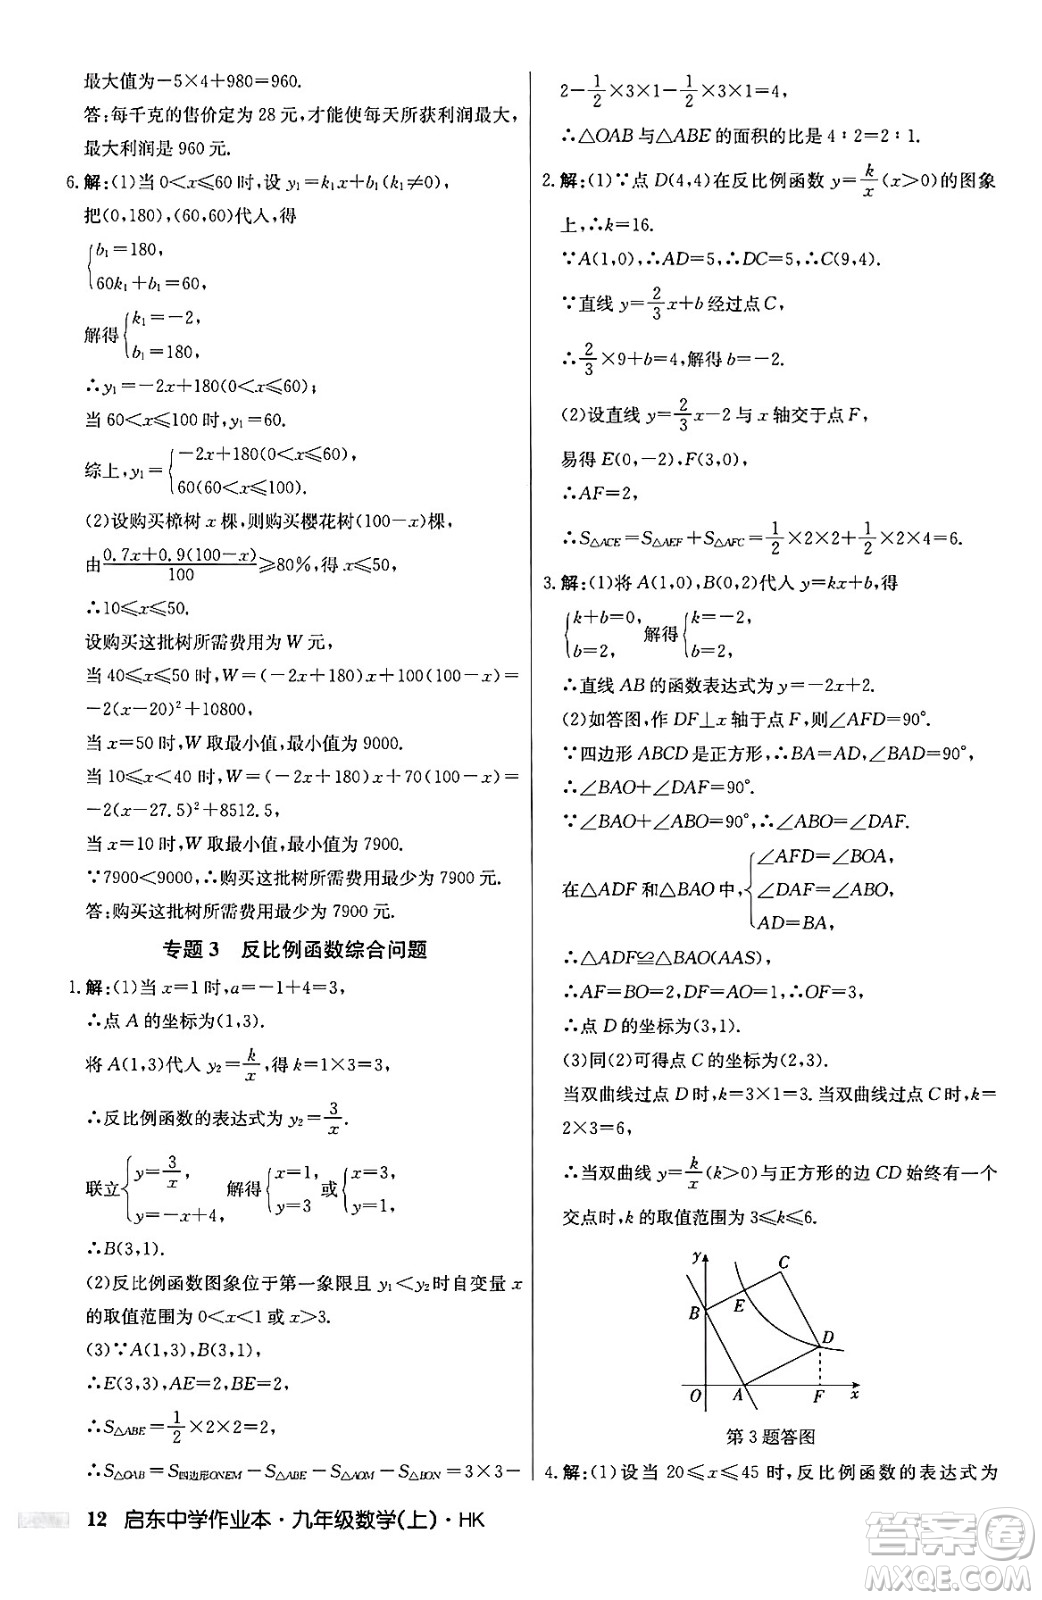 最大值为-5×4+980=960.
答:每千克的售价定为 28 元,才能使每天所获利润最大,
最大利润是 960 元.
6.解:(1)当 0<x⩽60 时,设 y₁=k₁x+b₁(k₁≠0),
把(0,180),(60,60)代人,得
{b₁=180,
60k₁+b₁=60,
解得{k₁=-2,
b₁=180,
∴y₁=-2x+180(0<x⩽60);
当 60<x⩽100 时,y₁=60.
综上,y₁={-2x+180(0<x⩽60),
60(60<x⩽100).
(2)设购买樟树 x 棵,则购买樱花树(100-x)棵,
由(0.7x+0.9(100-x))/100⩾80%,
∴10⩽x⩽50.
设购买这批树所需费用为 W 元,
当 40⩽x⩽50 时,W=(-2x+180)x+60(100-x)=
-2(x-20)²+10800,
当 x=50 时,W 取最小值,最小值为 9000.
当 10⩽x<40 时,W=(-2x+180)x+70(100-x)=
-2(x-27.5)²+8512.5,
当 x=10 时,W 取最小值,最小值为 7900.
∵7900<9000,∴购买这批树所需费用最少为 7900 元.
答:购买这批树所需费用最少为 7900 元.
专题 3 反比例函数综合问题
1.解:(1)当 x=1 时,a=-1+4=3,
∴点 A 的坐标为(1,3).
将 A(1,3)代人 y₂=k/x,得 k=1×3=3,
∴反比例函数的表达式为 y₂=3/x.
联立{y=3/x,
y=-x+4,
解得{x=1,
y=3
或{x=3,
y=1,
∴B(3,1).
(2)反比例函数图象位于第一象限且 y₁<y₂时自变量 x
的取值范围为 0<x<1 或 x>3.
(3)∵A(1,3),B(3,1),
∴E(3,3),AE=2,BE=2,
∴S△ABE=1/2×2×2=2,
∴S△OAB=S四边形ONEM-S△ABE-S△AOM-S△BON=3×3-
12 启东中学作业本·九年级数学(上)·HK
2-1/2×3×1-1/2×3×1=4,
∴△OAB 与△ABE 的面积的比是 4∶2=2∶1.
2.解:(1)∵点 D(4,4)在反比例函数 y=k/x(x>0)的图象
上,∴k=16.
∵A(1,0),∴AD=5,∴DC=5,∴C(9,4).
∵直线 y=2/3x+b 经过点 C,
∴2/3×9+b=4,解得 b=-2.
(2)设直线 y=2/3x-2 与 x 轴交于点 F,
易得 E(0,-2),F(3,0),
∴AF=2,
∴S△ACE=S△AEF+S△AFC=1/2×2×2+1/2×2×4=6.
3.解:(1)将 A(1,0),B(0,2)代人 y=kx+b,得
{k+b=0,
b=2,
解得{k=-2,
b=2,
∴直线 AB 的函数表达式为 y=-2x+2.
(2)如答图,作 DF⊥x 轴于点 F,则∠AFD=90°.
∵四边形 ABCD 是正方形,∴BA=AD,∠BAD=90°,
∴∠BAO+∠DAF=90°.
∵∠BAO+∠ABO=90°,∴∠ABO=∠DAF.
在△ADF 和△BAO 中,{∠AFD=∠BOA,
∠DAF=∠ABO,
AD=BA,
∴△ADF≌△BAO(AAS),
∴AF=BO=2,DF=AO=1,∴OF=3,
∴点 D 的坐标为(3,1).
(3)同(2)可得点 C 的坐标为(2,3).
当双曲线过点 D 时,k=3×1=3,当双曲线过点 C 时,k=
2×3=6,
∴当双曲线 y=k/x(k>0)与正方形的边 CD 始终有一个
交点时,k 的取值范围为 3⩽k⩽6.
y
C
E
B
D
O
A
F
x
第 3 题答图
4.解:(1)设当 20⩽x⩽45 时,反比例函数的表达式为
答案圈
MXQE.COM